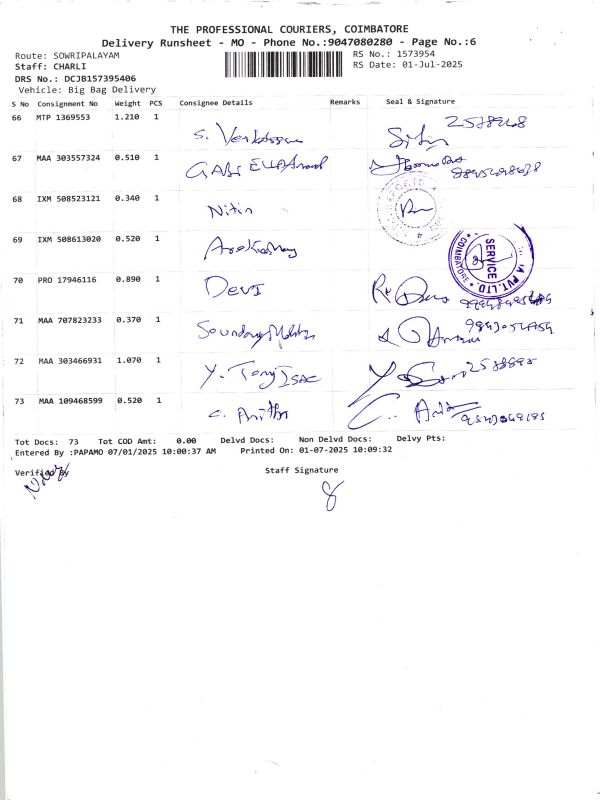 THE PROFESSIONAL COURIERS, COIMBATORE
Delivery Runsheet - MO - Phone No.:9047080280 - Page No.:6
Route: SOWRIPALAYAM RS No.: 1573954
Staff: CHARLI RS Date: 01-Jul-2025
DRS No.: DCJB157395406
Vehicle: Big Bag Delivery
S No Consignment No Weight PCS Consignee Details Remarks Seal & Signature
66 MTP 1369553 1.210 1 S.
67 MAA 303557324 0.510 1
68 IXM 508523121 0.340 1 Nitin
69 IXM 508613020 0.520 1
70 PRO 17946116 0.890 1 Devi
71 MAA 707823233 0.370 1
72 MAA 303466931 1.070 1 Y. Tony Isac
73 MAA 109468599 0.520 1 C. Anitha
COIMBATORE
SERVICE
PVT. LTD
Tot Docs: 73 Tot COD Amt: 0.00 Delvd Docs: Non Delvd Docs: Delvy Pts:
Entered By :PAPAMO 07/01/2025 10:00:37 AM Printed On: 01-07-2025 10:09:32
Verified By Staff Signature